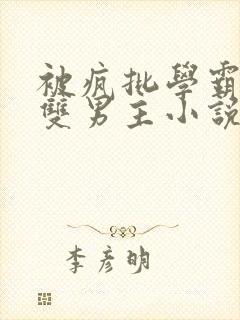 被疯批學霸
雙男主小說
李彥明